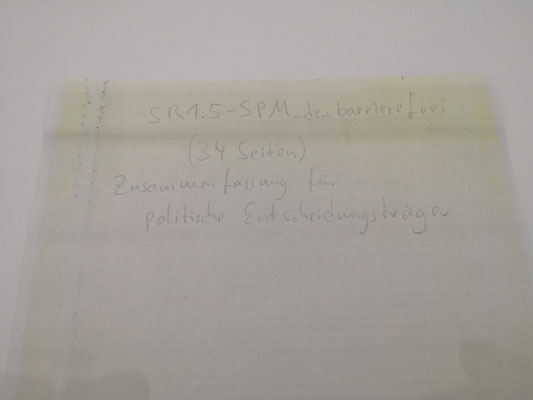 SR1.5-SPM_de_barrierefrei
(34 Seiten)
Zusammenfassung für
politische Entscheidungsträger